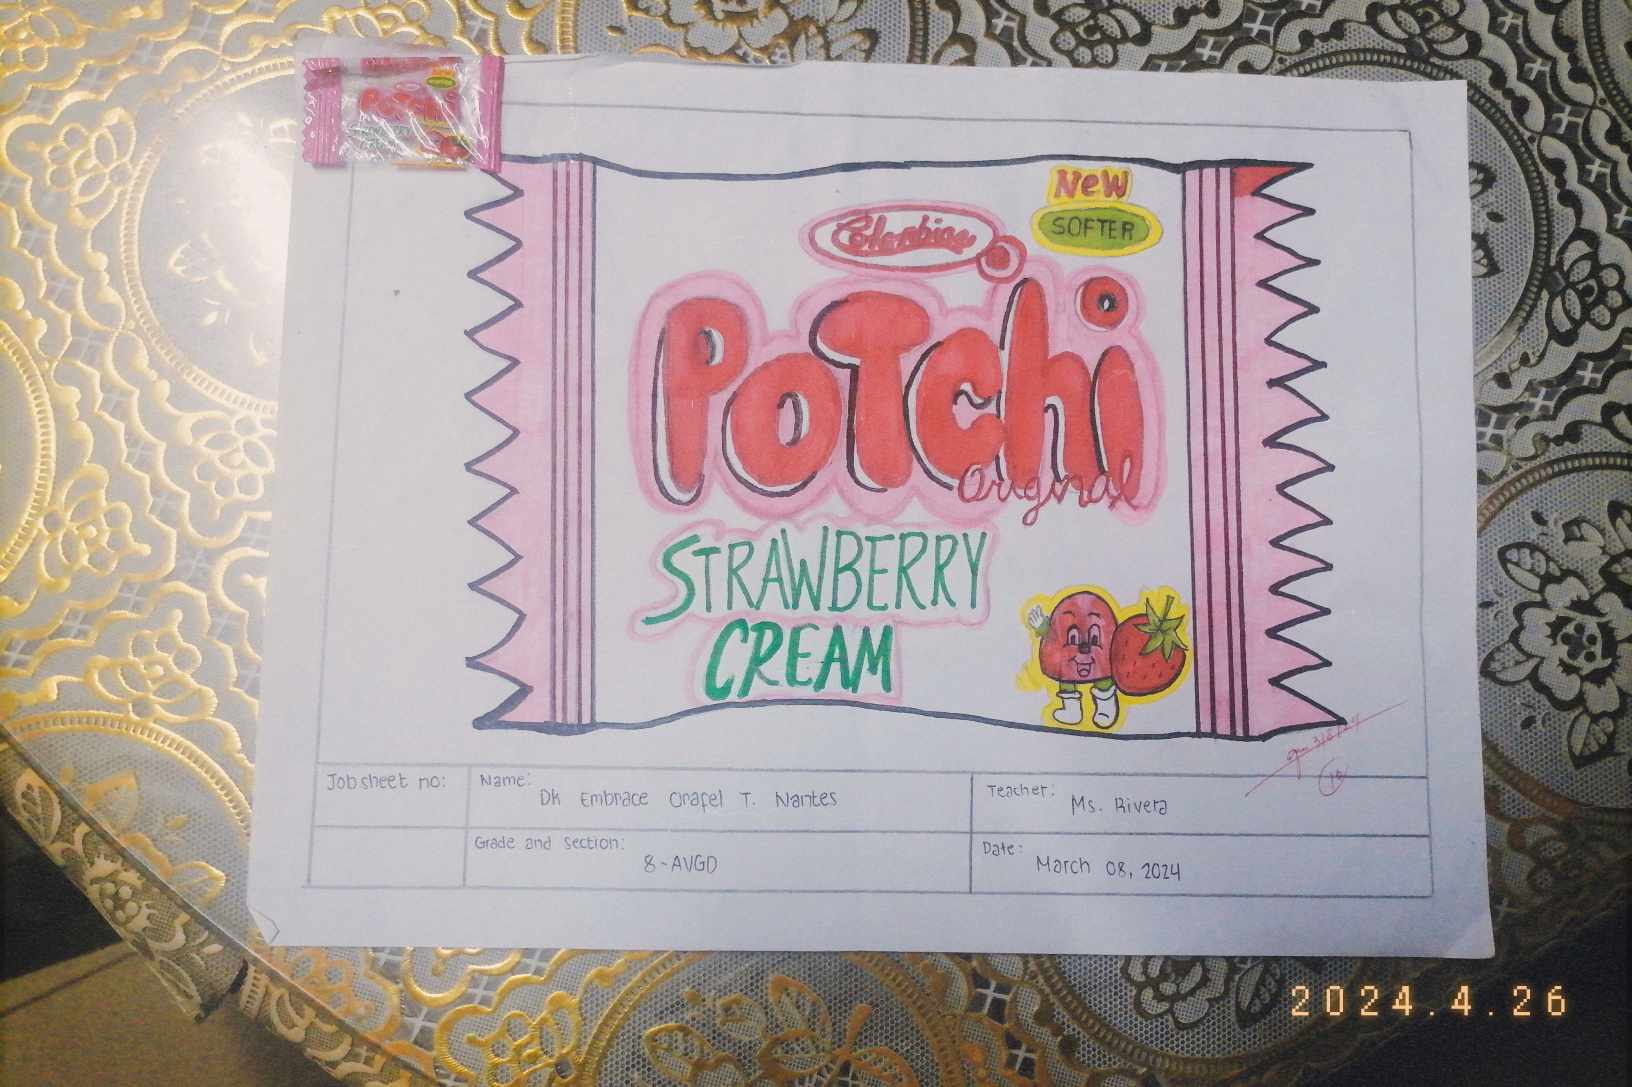 Potchi
STRAWBERRY
CREAM
New
SOFTER
Columbia
PoTchi
Original
STRAWBERRY
CREAM
3/8/24
Job sheet no:
Name:
Dk Embrace Orafel T. Nantes
Teacher:
Ms. Rivera
Grade and Section:
8-AVGD
Date:
March 08, 2024
2024.4.26